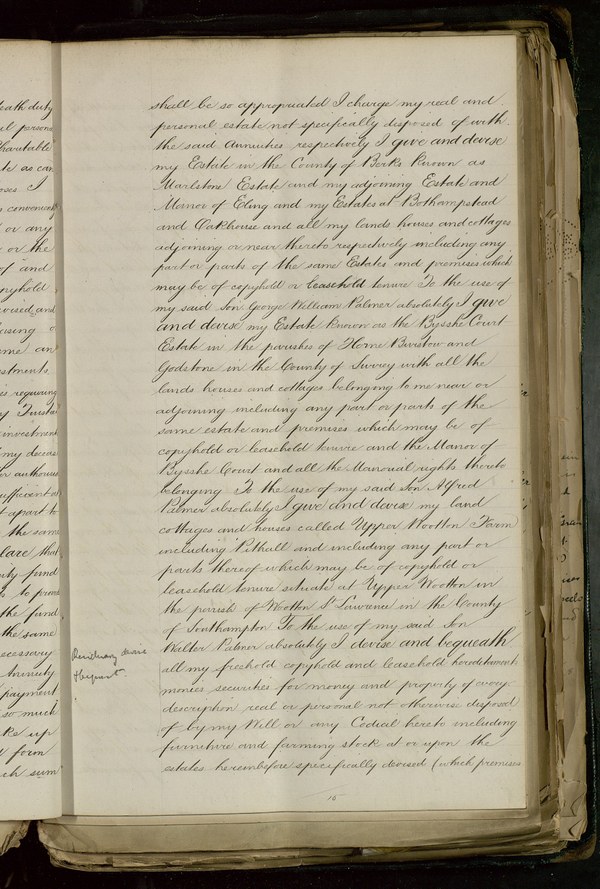 eath duty
al persona
Charitable
te as can
oses I
s conveniently
or any
or the
of and
opyhold
evised and
aising
me an
stments
es requiring
y Trusts
investment
my decease
or authorise
sufficient
t apart to
the same
clare that
ity fund
to prove
the fund
the same
ecessary
Annuity
payment
so much
ke up
form
ch sum
shall be so appropriated I charge my real and
personal estate not specifically disposed of with
the said Annuities respectively I give and devise
my Estate in the County of Berks known as
Marlstone Estate and my adjoining Estate and
Manor of Eling and my Estates at Bothampstead
and Oakhouse and all my lands houses and cottages
adjoining or near thereto respectively including any
part or parts of the same Estates and premises which
may be of copyhold or leasehold tenure To the use of
my said Son George William Palmer absolutely I give
and devise my Estate known as the Bysshe Court
Estate in the parishes of Horne Burstow and
Godstone in the County of Surrey with all the
lands houses and cottages belonging to me near or
adjoining including any part or parts of the
same estate and premises which may be of
copyhold or leasehold tenure and the Manor of
Bysshe Court and all the Manorial rights thereto
belonging To the use of my said Son Alfred
Palmer absolutely I give and devise my land
cottages and houses called Upper Wootton Farm
including Pithall and including any part or
parts thereof which may be of copyhold or
leasehold tenure situate at Upper Wootton in
the parish of Wootton St Lawrence in the County
of Southampton To the use of my said Son
Walter Palmer absolutely I devise and bequeath
Residuary devise
& bequest
all my freehold copyhold and leasehold hereditaments
monies securities for money and property of every
description real or personal not otherwise disposed
of by my Will or any Codicil hereto including
furniture and farming stock at or upon the
estates hereinbefore specifically devised (which premises
15